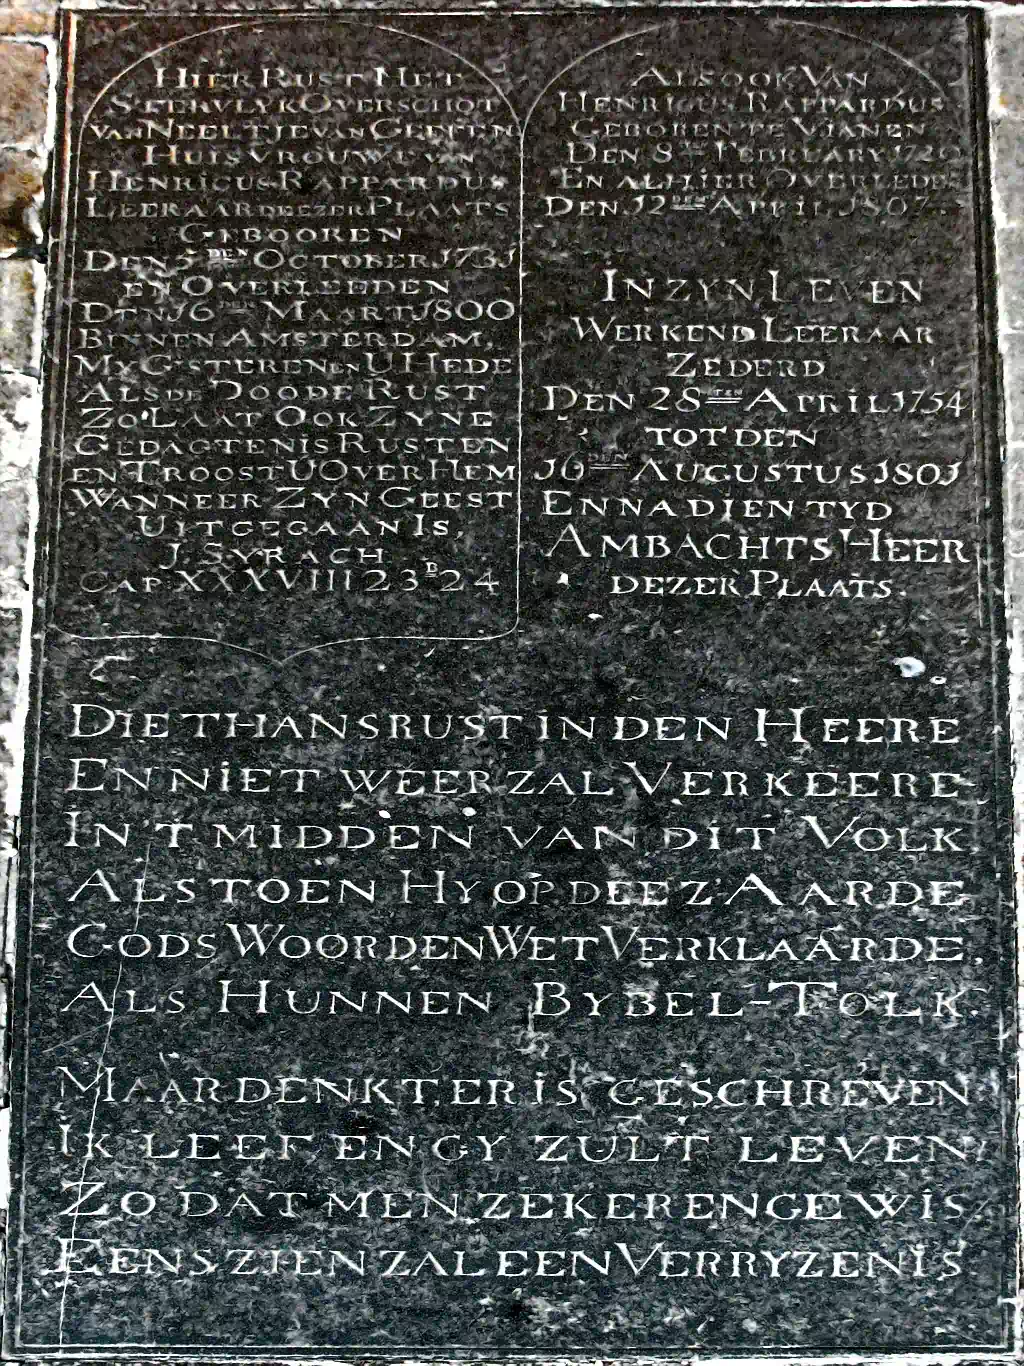 HIER RUST HET
STERVLYK OVERSCHOT
VAN NEELTJE VAN GEFFEN
HUISVROUWE VAN
HENRICUS RAPPARDUS
LEERAAR DEEZER PLAATS
GEBOOREN
DEN 5 DEN OCTOBER 1731
EN OVERLEEDEN
DEN 16 DEN MAART 1800
BINNEN AMSTERDAM,
MY GISTEREN EN U HEDE
ALS DE DOODE RUST
ZO LAAT OOK ZYNE
GEDAGTENIS RUSTEN
EN TROOST U OVER HEM
WANNEER ZYN GEEST
UITGEGAAN IS,
J. SYRACH
CAP. XXXVIII 23 EN 24
ALSOOK VAN
HENRICUS RAPPARDUS
GEBOREN TE VIANEN
DEN 8 STE FEBRUARY 1726
EN ALHIER OVERLEDEN
DEN 12 DEN APRIL 1807.
IN ZYN LEVEN
WERKEND LEERAAR
ZEDERD
DEN 28 STEN APRIL 1754
TOT DEN
16 DEN AUGUSTUS 1801
EN NA DIEN TYD
AMBACHTS HEER
DEZER PLAATS.
DIE THANS RUST IN DEN HEERE
EN NIET WEER ZAL VERKEERE
IN 'T MIDDEN VAN DIT VOLK.
ALS TOEN HY OP DEEZ' AARDE
GODS WOORD EN WET VERKLAARDE,
ALS HUNNEN BYBEL-TOLK.
MAAR DENKT, ER IS GESCHREVEN
IK LEEF EN GY ZULT LEVEN
ZO DAT MEN ZEKER EN GEWIS
EENS ZIEN ZAL EEN VERRYZENIS.